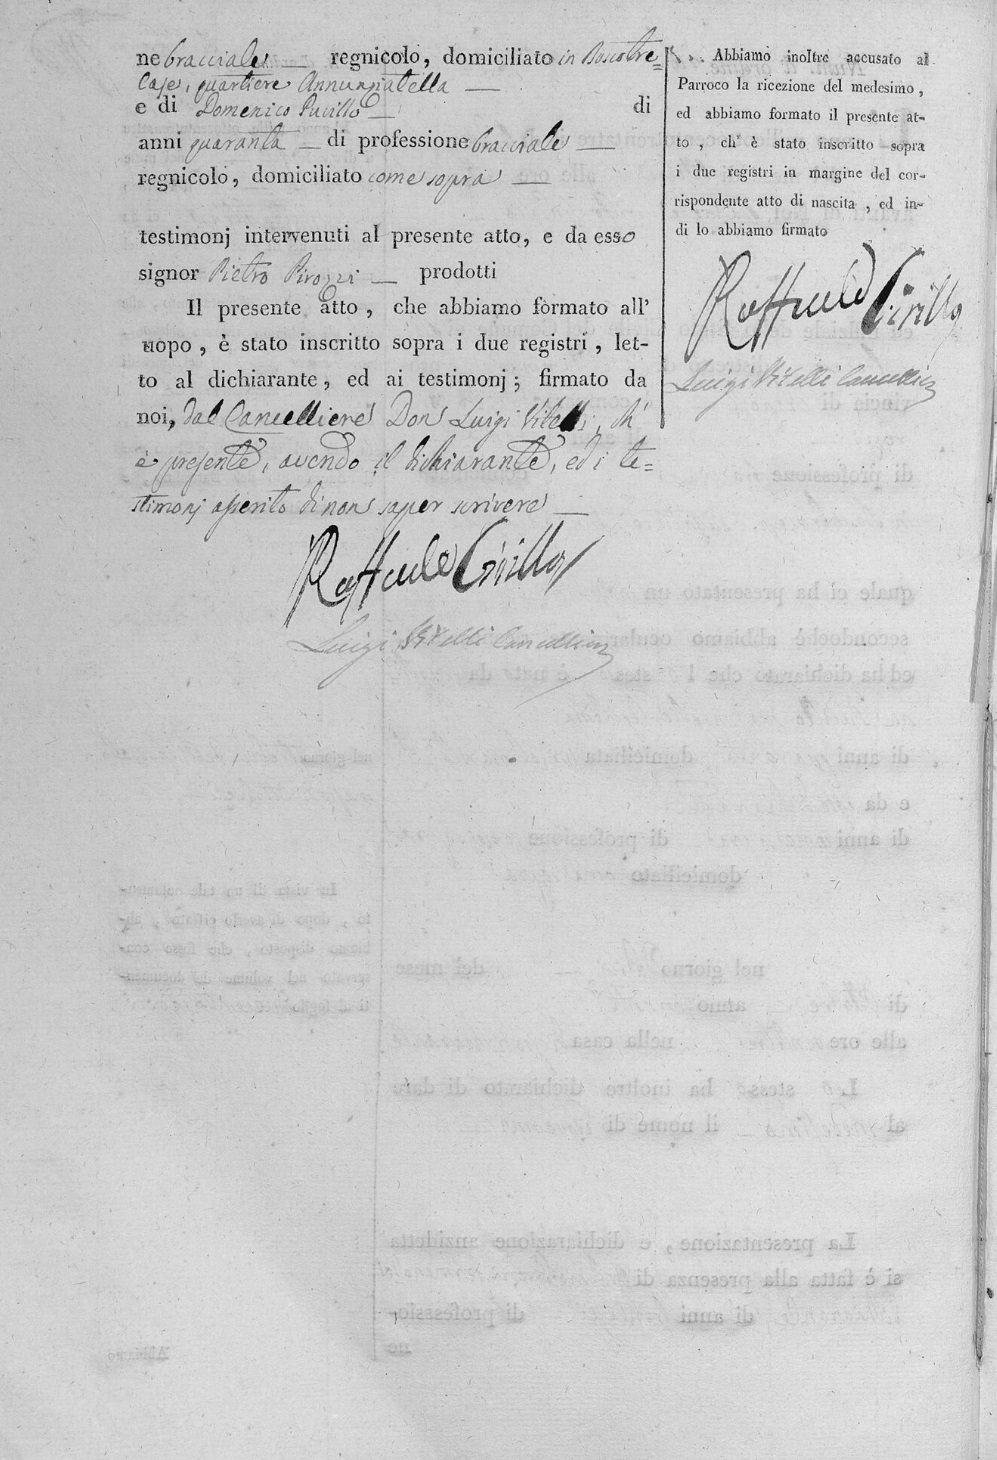 ne bracciale — regnicolo, domiciliato in Boscotre=
Case, quartiere Annunziatella —
e di Domenico Pucillo — di
anni quaranta — di professione bracciale —
regnicolo, domiciliato come sopra —
testimonj intervenuti al presente atto, e da esso
signor Pietro Pirozzi — prodotti
Il presente atto, che abbiamo formato all'
uopo, è stato inscritto sopra i due registri, let-
to al dichiarante, ed ai testimonj; firmato da
noi, dal Cancelliere Don Luigi Vitelli, ch'
è presente, avendo il dichiarante, ed i te=
stimonj asserito di non saper scrivere —
Raffaele Cirillo
Luigi Vitelli Cancelliere
Abbiamo inoltre accusato al
Parroco la ricezione del medesimo,
ed abbiamo formato il presente at-
to, ch' è stato inscritto sopra
i due registri in margine del cor-
rispondente atto di nascita, ed in-
di lo abbiamo firmato
Raffaele Cirillo
Luigi Vitelli Cancelliere